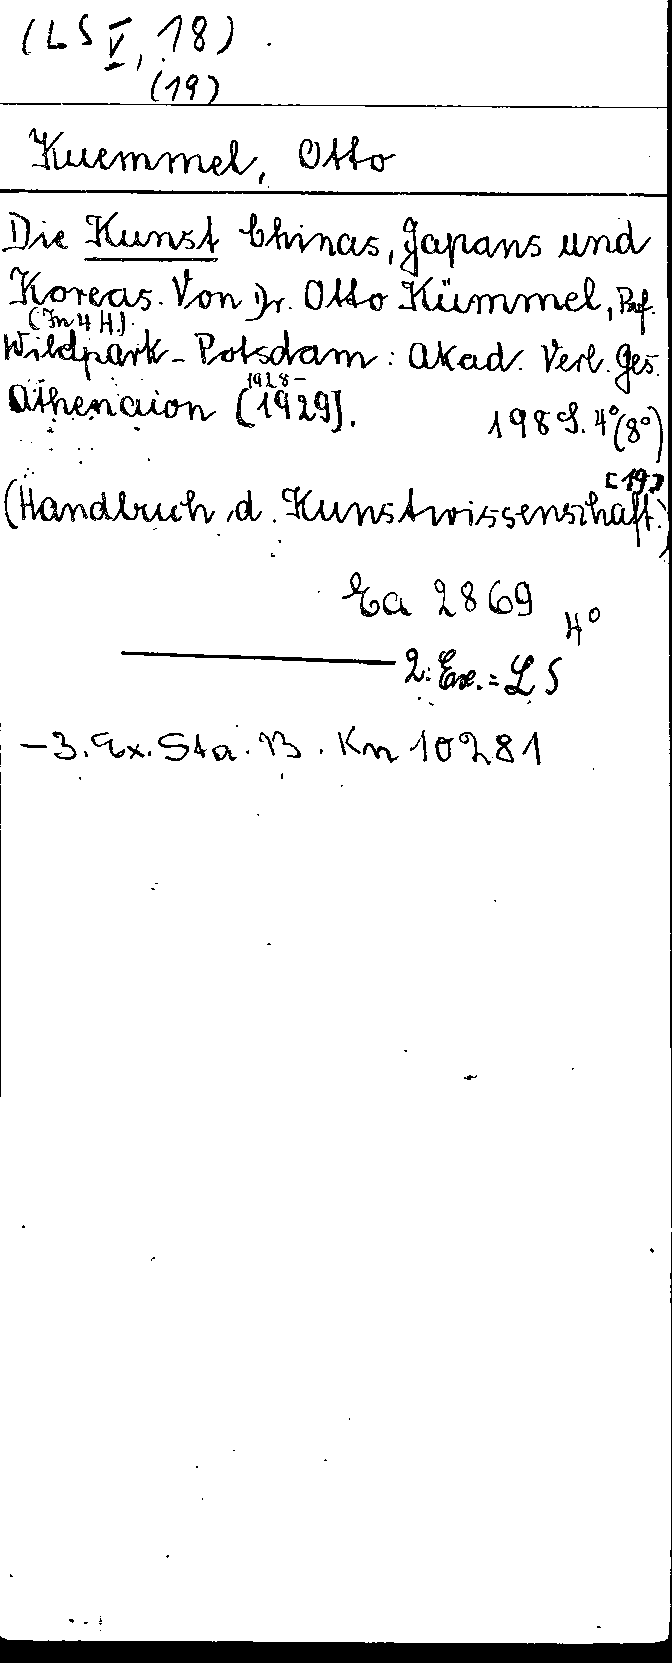 (LS V, 18)
(19)
Kuemmel, Otto
Die Kunst Chinas, Japans und
Koreas. Von Dr. Otto Kümmel, Prof.
(In 4 H).
Wildpark-Potsdam: Akad. Verl. Ges.
1928-
Athenaion [1929].
198 S. 4°(8°)
[19]
(Handbuch d. Kunstwissenschaft.)
Ea 2869 4°
2. Ex. = LS
- 3. Ex. Sta. B. Kn 10281